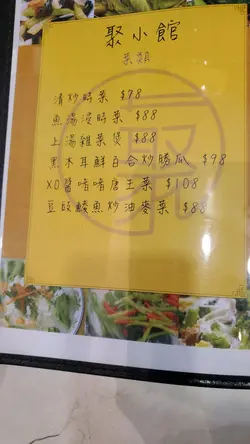 聚小館
菜類
清炒時菜 $78
魚湯浸時菜 $88
上湯雜菜煲 $88
黑木耳鮮百合炒勝瓜 $98
XO醬啫啫唐生菜 $108
豆豉鯪魚炒油麥菜 $88